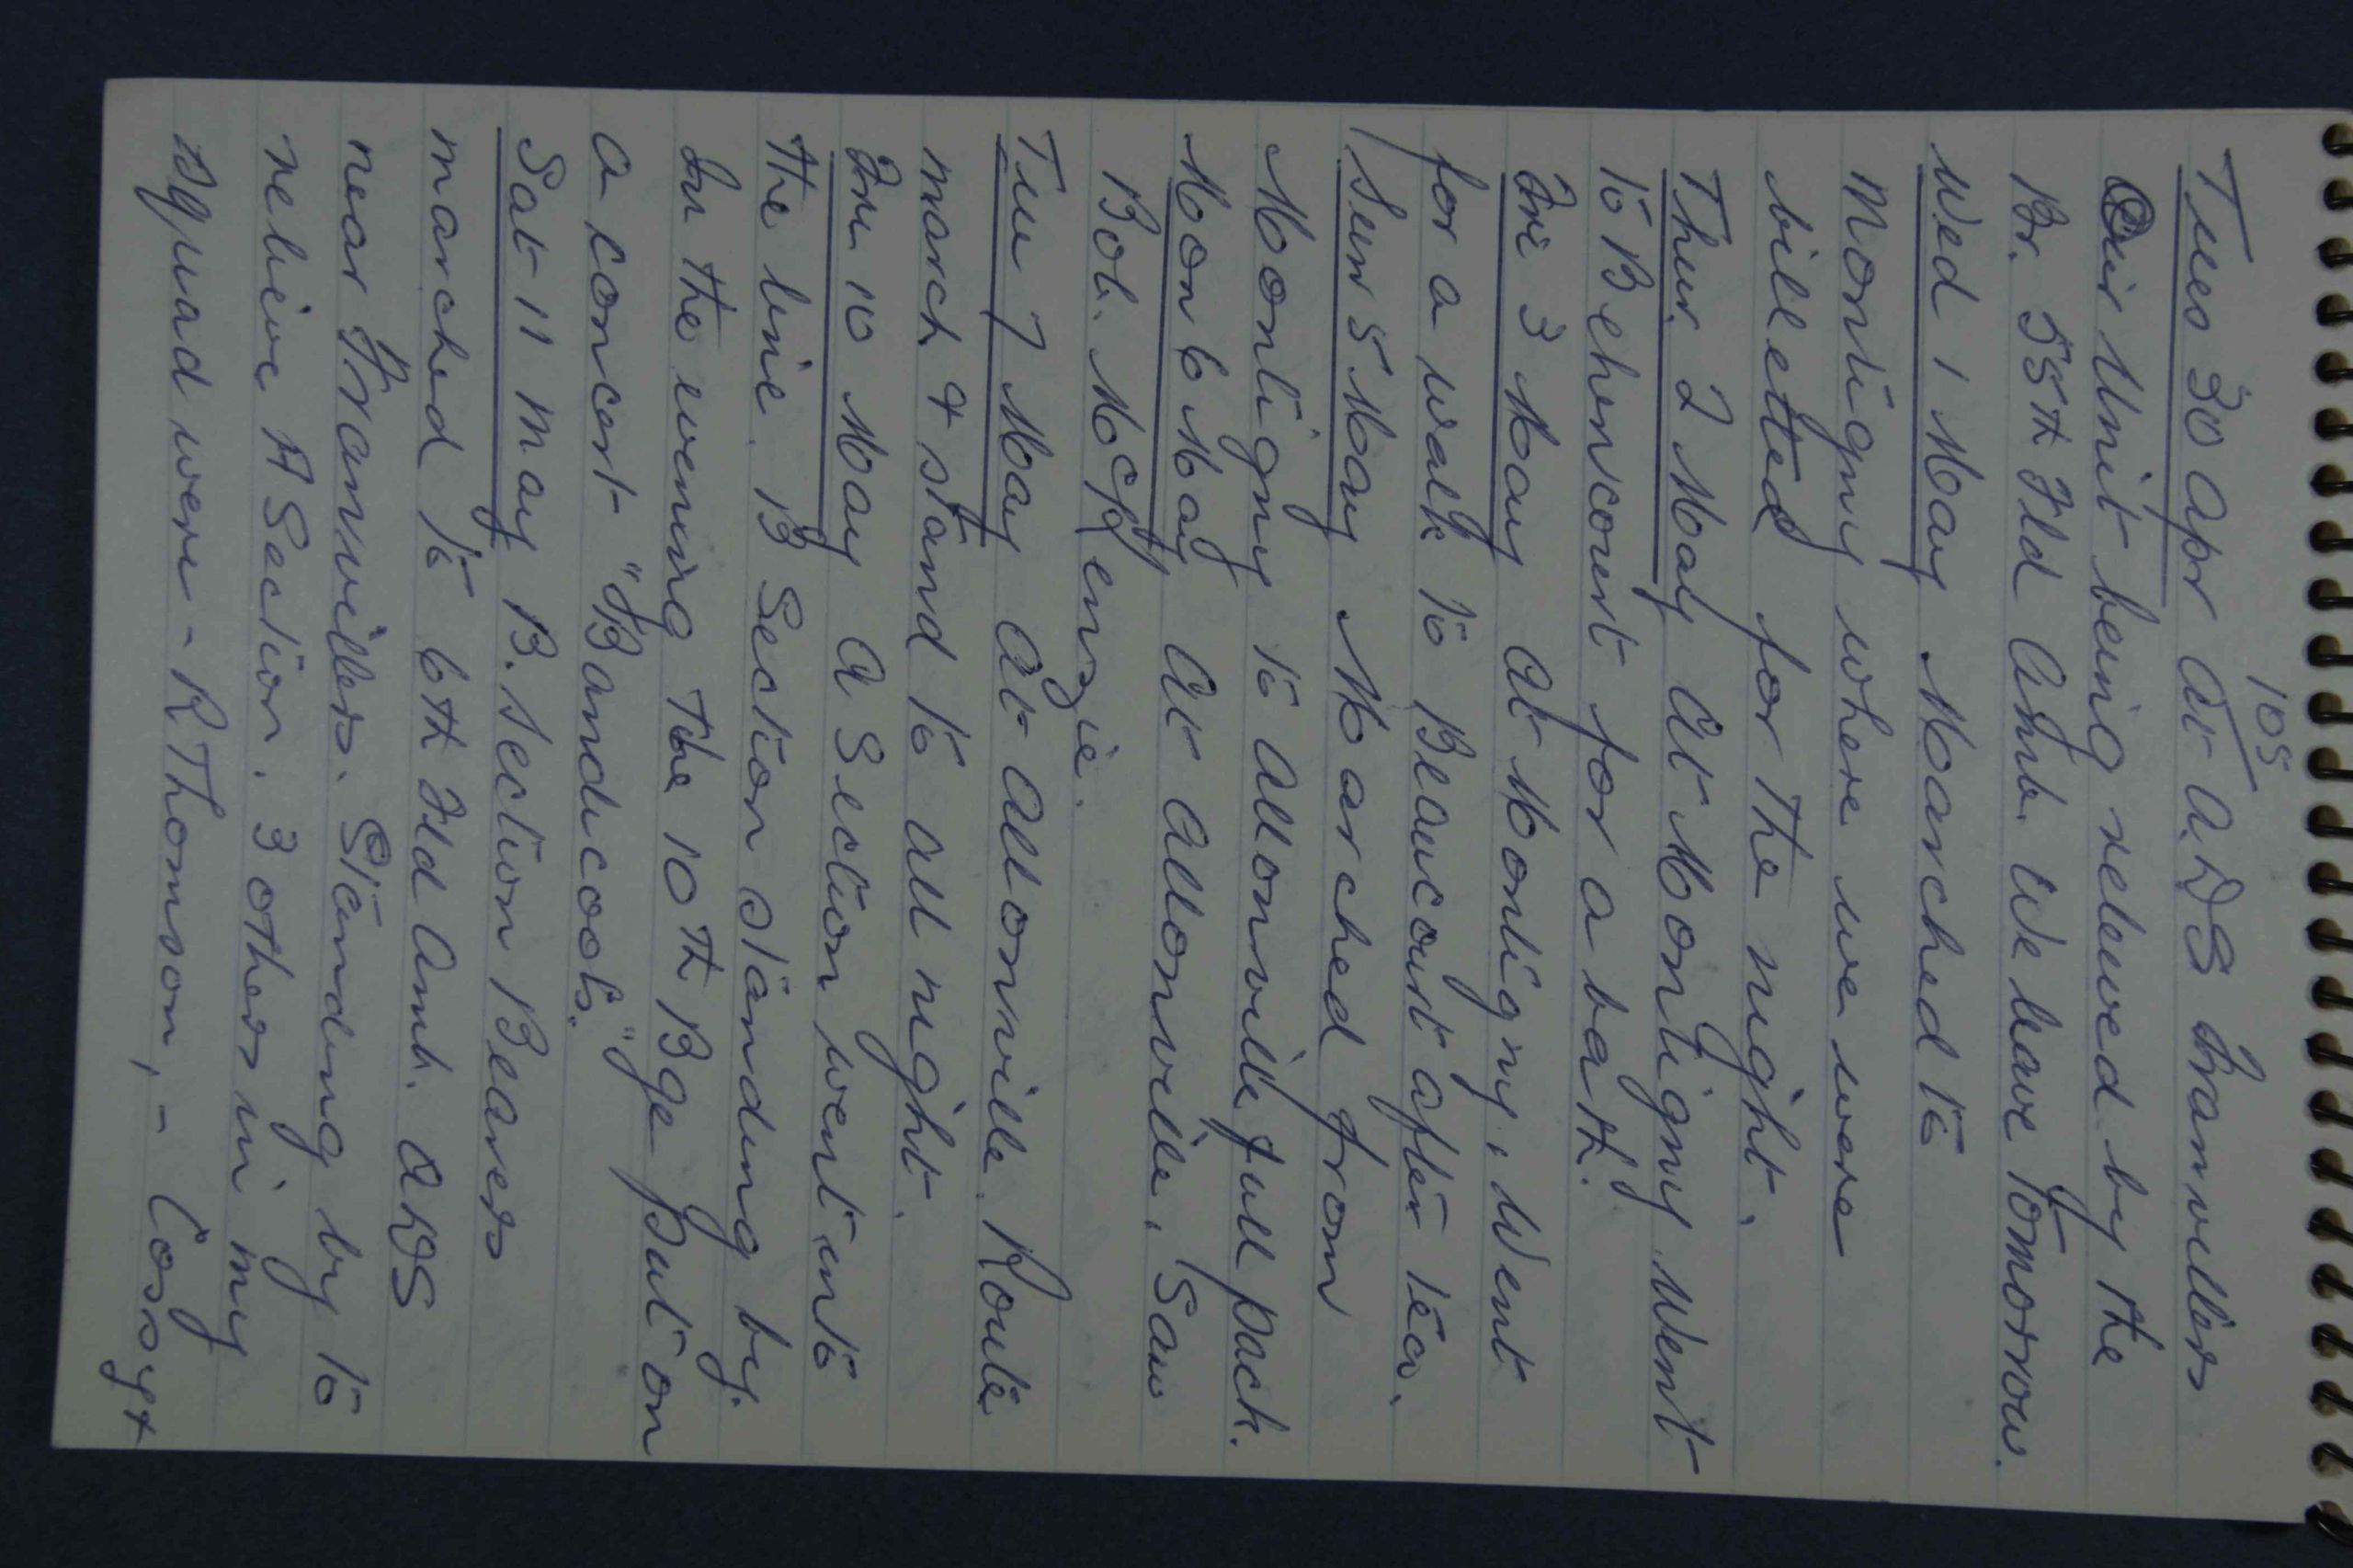 105
Tues 30 Apr At A.DS Franvillers
Our Unit being relieved by the
Br. 55th Fld Amb. We leave Tomorrow.
Wed 1 May Marched to
Montigny where we were
billetted for the night.
Thur 2 May At Montigny Went
to Behencourt for a bath.
Fri 3 May At Montigny, Went
for a walk to Beaucourt after tea.
Sun 5 May Marched from
Montigny to Allonville full pack.
Mon 6 May At Allonville, Saw
Bob. McKenzie.
Tue 7 May At Allonville. Route
march & stand to all night.
Fri 10 May A Section went into
the line. B Section standing by.
In the evening the 10th Bge put on
a concert "Bandicoots"
Sat 11 May B. Section Bearers
marched to 6th Fld Amb. ADS
near Franvillers. Standing by to
relieve A Section. 3 others in my
squad were - R Thomson, - Cossgt